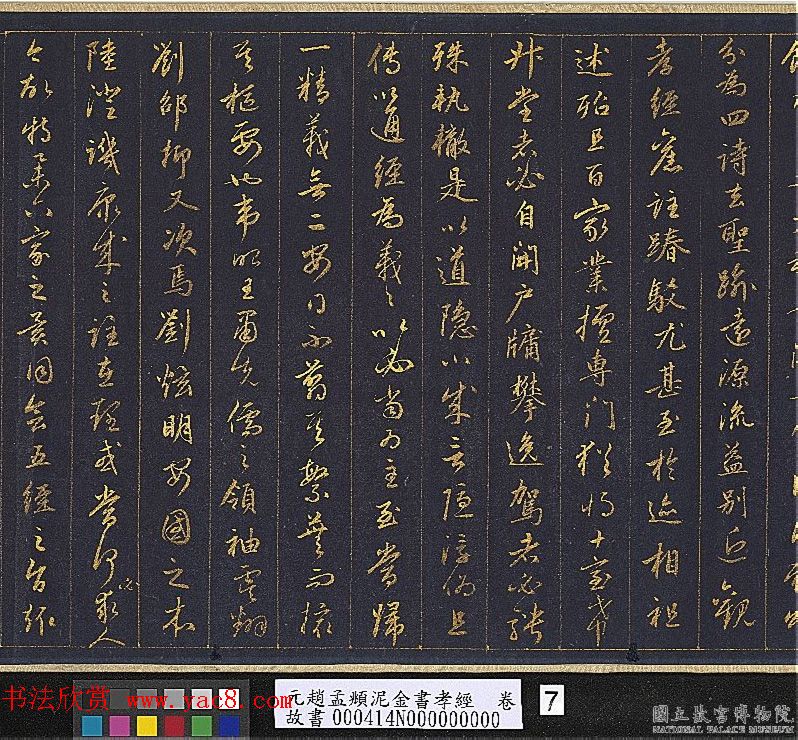 分為四詩去聖逾遠源流益別近觀
孝經舊註踳駁尤甚至於迹相祖
述殆且百家業擅專門猶將十室希
升堂者必自開戶牖攀逸駕者必騁
殊軌轍是以道隱小成言隱浮偽且
傳以通經為義〻以必當為主至當歸
一精義無二安得不翦其繁蕪而撮
其樞要也韋昭王肅先儒之領袖虞翻
劉邵抑又次焉劉炫明安國之本
陸澄譏康成之註在理或當何必求人
今故特舉六家之異同會五經之旨趣
书法欣赏 www.yac8.com
元趙孟頫泥金書孝經 卷
故書000414N000000000
7
國立故宮博物院
NATIONAL PALACE MUSEUM